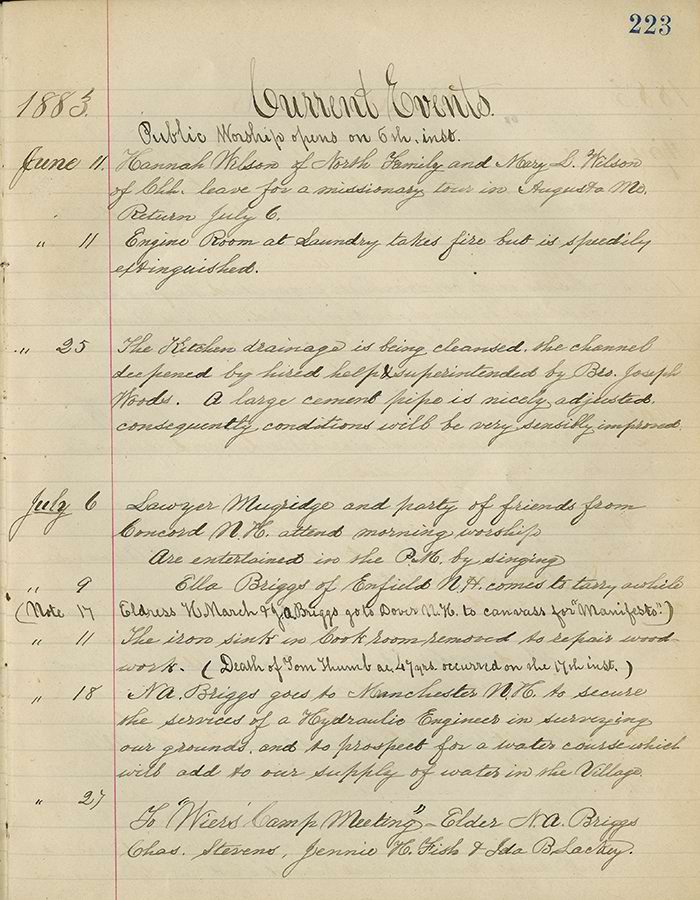 223
1883. Current Events.
Public Worship opens on 6th. inst.
June 11. Hannah Wilson of North Family and Mary L. Wilson
of Chh. leave for a missionary tour in Augusta Me.
Return July 6.
" 11 Engine Room at Laundry takes fire but is speedily
extinguished.
" 25 The Kitchen drainage is being cleansed, the channel
deepened by hired help & superintended by Bro. Joseph
Woods. A large cement pipe is nicely adjusted,
consequently conditions will be very sensibly improved
July 6 Lawyer Mugridge and party of friends from
Concord N.H. attend morning worship
Are entertained in the P.M. by singing
" 9 Ella Briggs of Enfield N.H. comes to tarry awhile
(Note 17 Eldress H. March & J A Briggs go to Dover N.H. to canvass for "Manifesto")
" 11 The iron sink in Cook room removed to repair wood
work. (Death of Tom Thumb ae. 47 yrs. occurred on the 17th inst.)
" 18 N A. Briggs goes to Manchester N.H. to secure
the services of a Hydraulic Engineer in surveying
our grounds, and to prospect for a water course which
will add to our supply of water in the Village
" 27
To "Wier's Camp Meeting" - Elder N. A. Briggs
Chas. Stevens, Jennie H. Fish & Ida B Lackey.